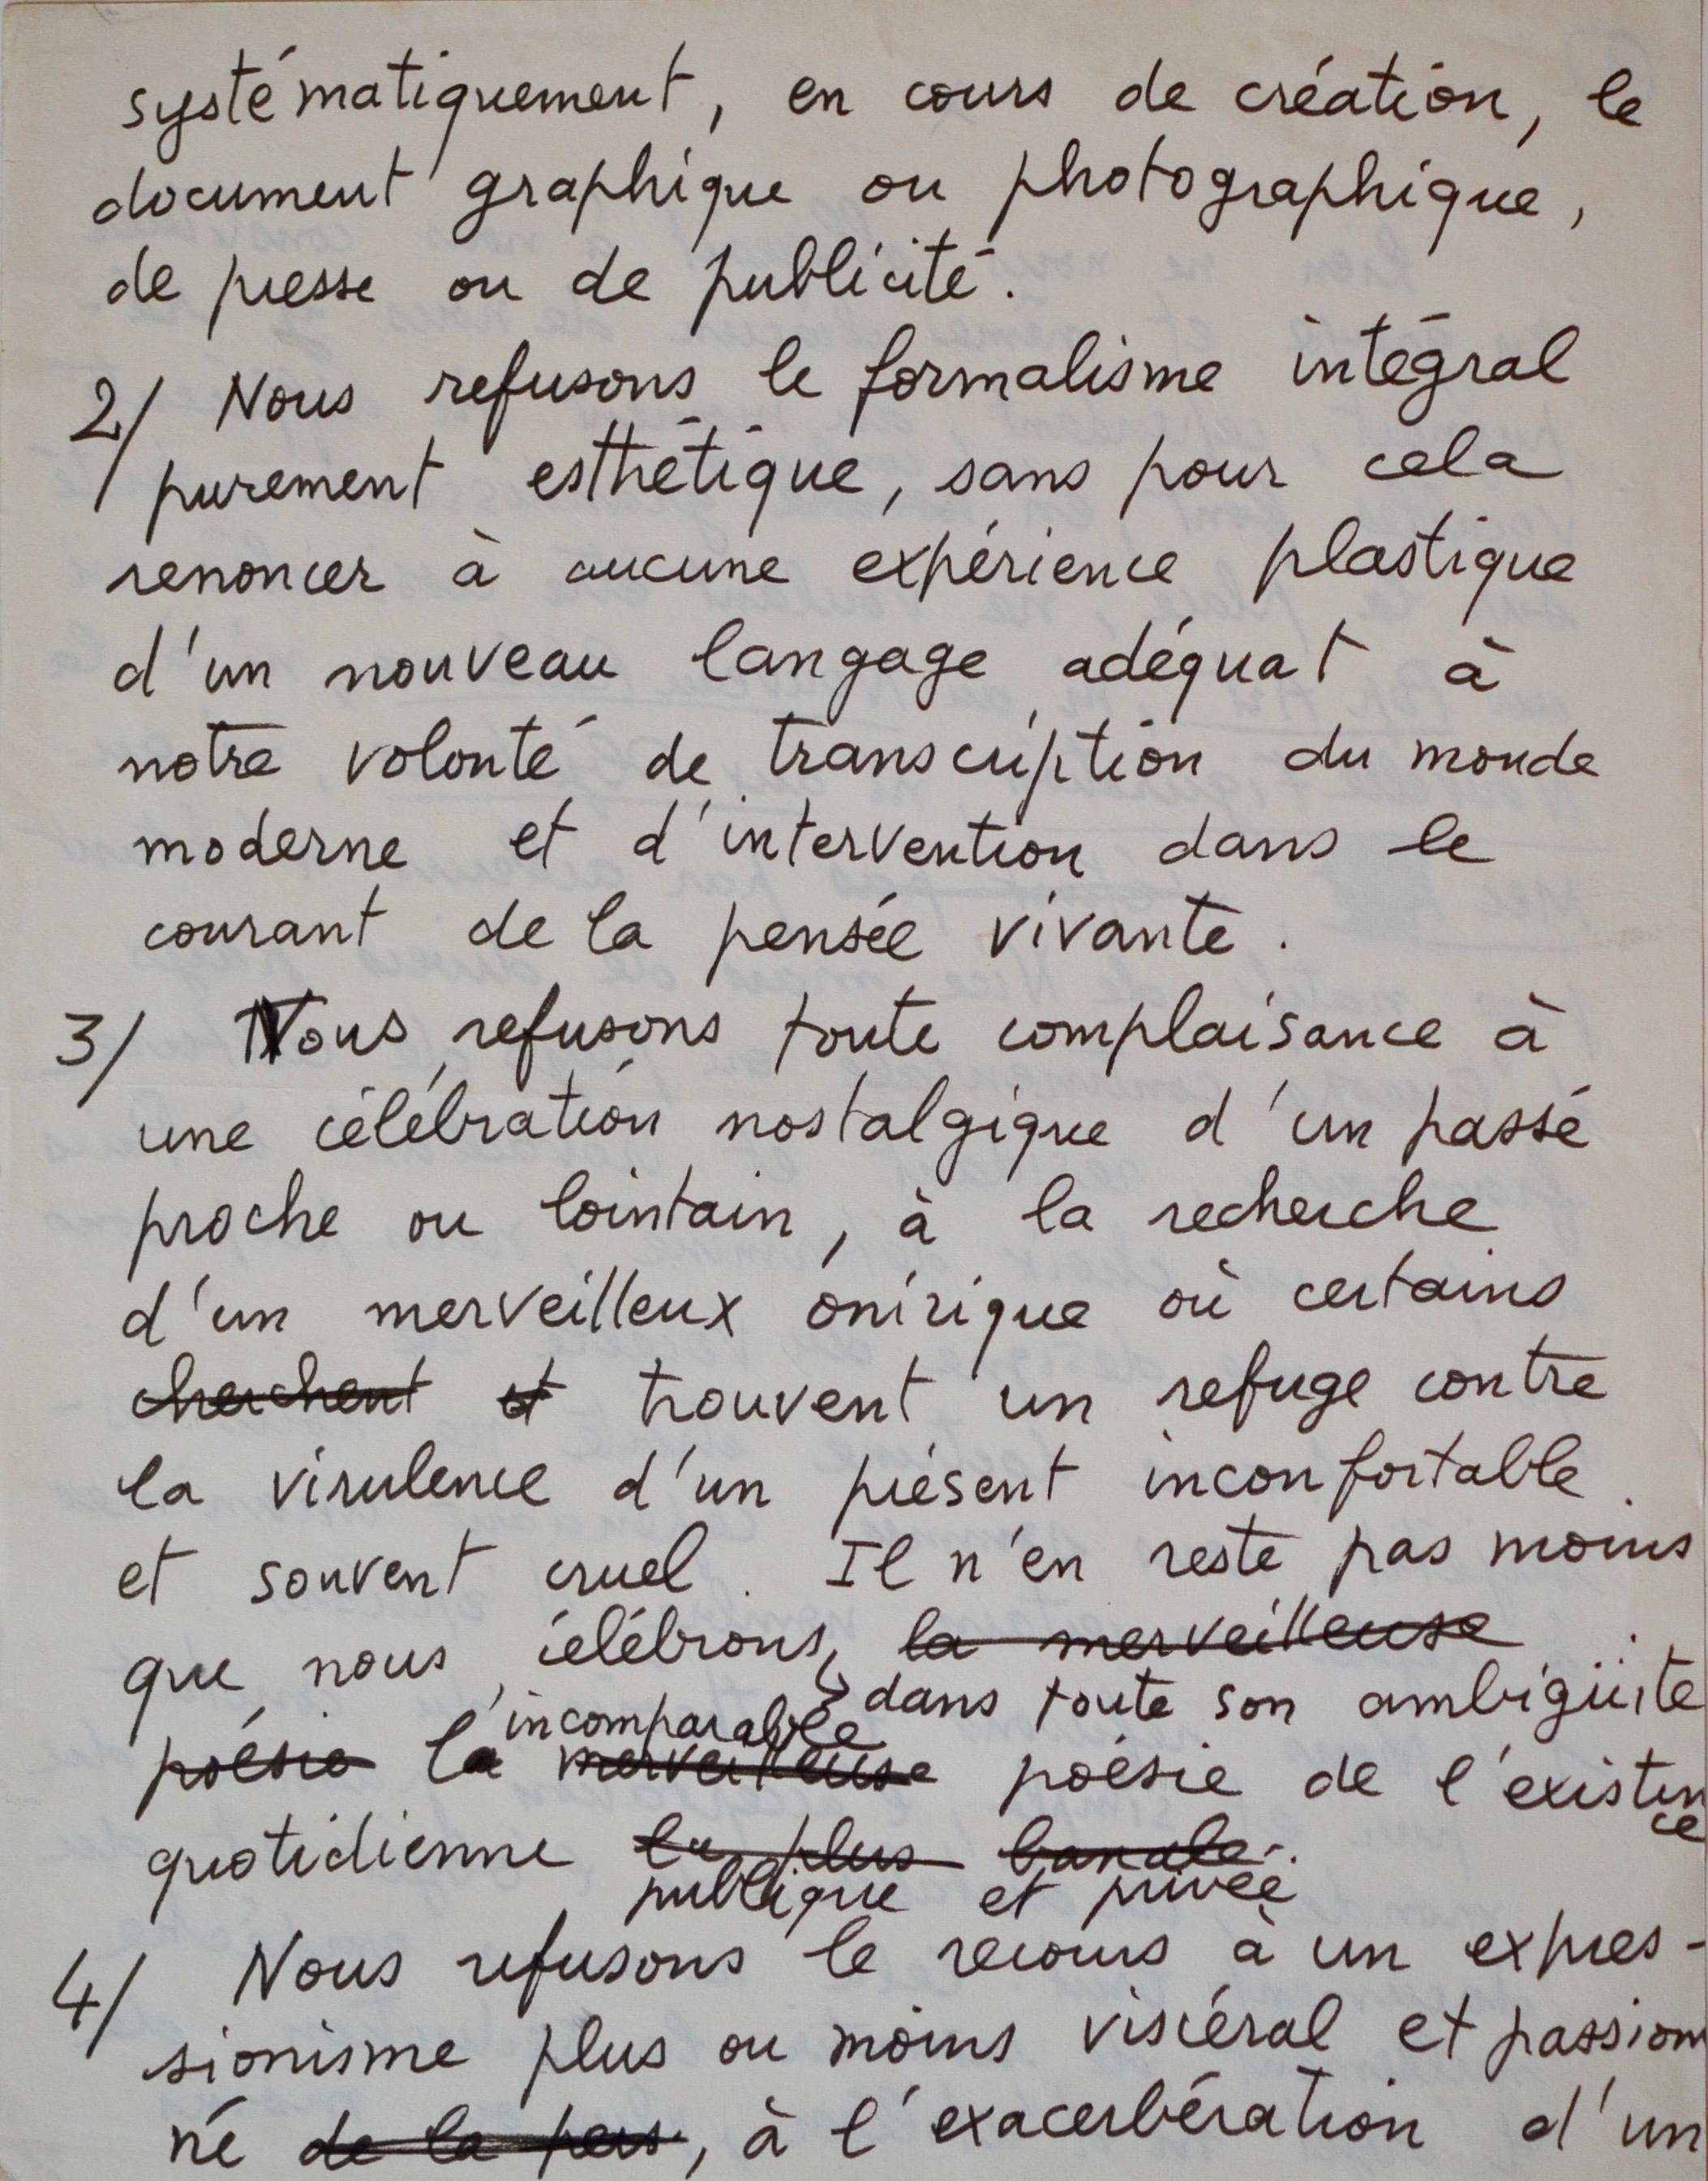 systématiquement, en cours de création, le
document graphique ou photographique,
de presse ou de publicité.
2/ Nous refusons le formalisme intégral
purement esthétique, sans pour cela
renoncer à aucune expérience plastique
d'un nouveau langage adéquat à
notre volonté de transcription du monde
moderne et d'intervention dans le
courant de la pensée vivante.
3/ Nous refusons toute complaisance à
une célébration nostalgique d'un passé
proche ou lointain, à la recherche
d'un merveilleux onirique où certains
cherchent et trouvent un refuge contre
la virulence d'un présent inconfortable.
et souvent cruel. Il n'en reste pas moins
que nous célébrons, la merveilleuse
dans toute son ambigüite
incomparable
poésie la merveilleuse poésie de l'existen
ce
quotidienne la plus banale.
publique et privée
4/ Nous refusons le recours à un expres-
sionisme plus ou moins viscéral et passion
né de la pers, à l'exacerbération d'un